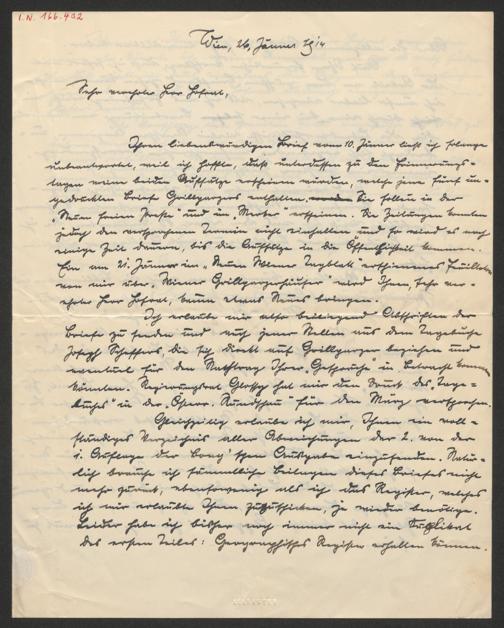 I.N. 166.402
Wien, 26. Jänner 1914
Sehr verehrter Herr Hofrat,
Ihren liebenswürdigen Brief vom 10. Jänner ließ ich so lange
unbeantwortet, weil ich hoffte, daß unterdessen zu den Erinnerungs-
tagen meine beiden Aufsätze erscheinen würden, welche jene fünf un-
gedruckten Briefe Grillparzers enthalten. Sie sollen in der
„Neuen Freien Presse“ und im „Merker“ erscheinen. Die Zeitungen konnten
jedoch den versprochenen Termin nicht einhalten und so wird es noch
einige Zeit dauern, bis die Aufsätze in die Öffentlichkeit kommen.
Ein am 21. Jänner im „Neuen Wiener Tagblatt“ erschienenes Feuilleton
von mir über „Wiener Grillparzerhäuser“ wird Ihnen, sehr ver-
ehrter Herr Hofrat, kaum etwas Neues bringen.
Ich erlaube mir also beiliegend Abschriften der
Briefe zu senden und auch jener Stellen aus dem Tagebuche
Joseph Schreyvogels, die sich direkt auf Grillparzer beziehen und
eventuell für den Nachtrag Ihrer Gespräche in Betracht kommen
könnten. Regierungsrat Glossy hat mir den Druck des „Tage-
buches“ in der „Österr. Rundschau“ für den März versprochen.
Gleichzeitig erlaube ich mir, Ihnen ein voll-
ständiges Verzeichnis aller Abweichungen der 2. von der
1. Auflage der Bong'schen Ausgabe einzusenden. Natür-
lich brauche ich sämmtliche Beilagen dieses Briefes nicht
mehr zurück, ebensowenig als ich das Register, welches
ich mir erlaubte Ihnen zu schicken, je wieder benötige.
Leider habe ich bisher noch immer nicht ein Duplikat
des ersten Teiles: Geographisches Register erhalten können.